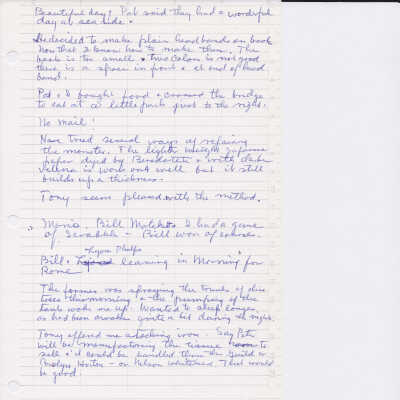 Beautiful day! Pat said they had a wonderful
day at sea side.
Idecided to make plain headbands on book
Now that I know how to make them. The
book is too small & two colors is not good
there is a space in front & at end of head
band.
Pat & I bought food & crossed the bridge
to eat at a little park just to the right.
No mail!
Have tried several ways of refining
the monster. The lighter weight Japanese
paper dyed by Benedetete with
work out well but it still
builds up a thickness.
Tony seem pleased with the method.
Maria, Bill Matcher & I had a game
of Scrabble - Bill won of course.
Lynn Phelps
Bill & leaving in Morning for
Rome
The farmer was spraying the trunks of olive
trees this morning & the pumping of the
tank woke me up. Wanted to sleep longer
as had been awake quite a bit during the night.
Tony offered me a tacking iron. Say Pete
will be manufacturing the tissue to
sell & it could be handled thru the Guild or
Carolyn Horton - or Nelson Whitehead. That would
be good.